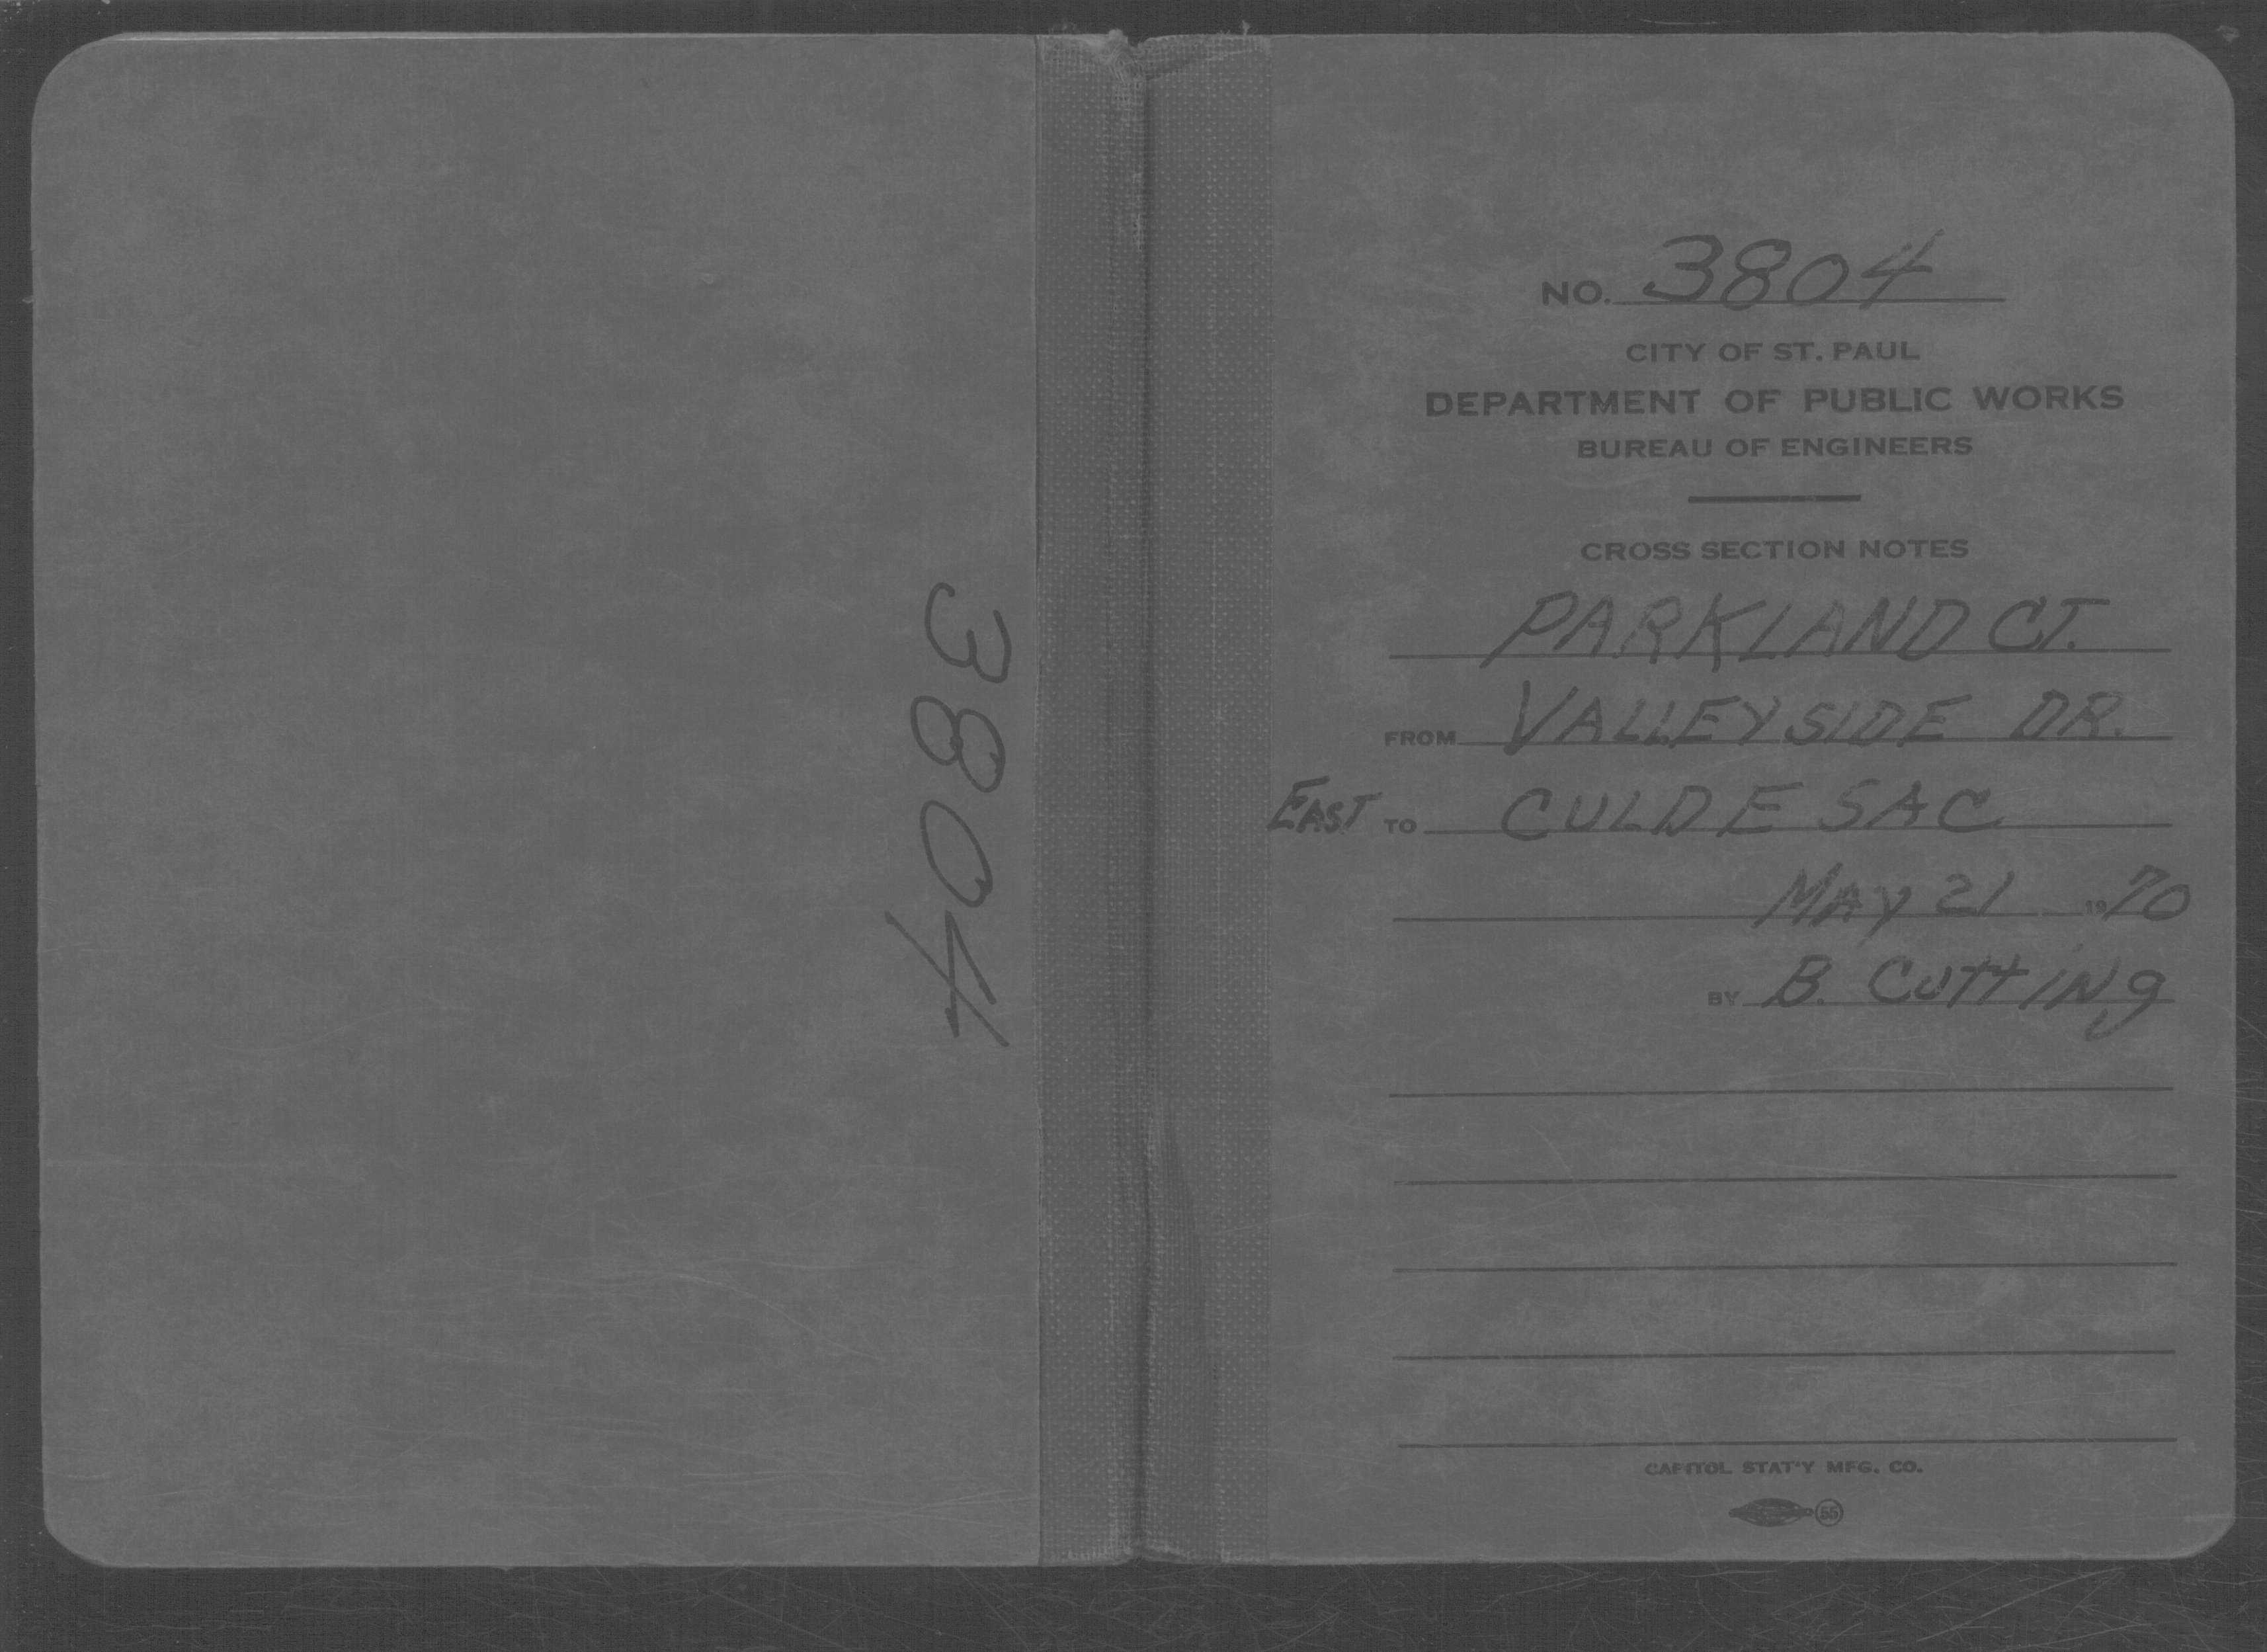 3804
NO. 3804
CITY OF ST. PAUL
DEPARTMENT OF PUBLIC WORKS
BUREAU OF ENGINEERS
CROSS SECTION NOTES
PARKLAND CT.
FROM VALLEYSIDE DR.
EAST TO CULDESAC
MAY 21 1970
BY B. Cutting
CAPITOL STAT'Y MFG. CO.
55